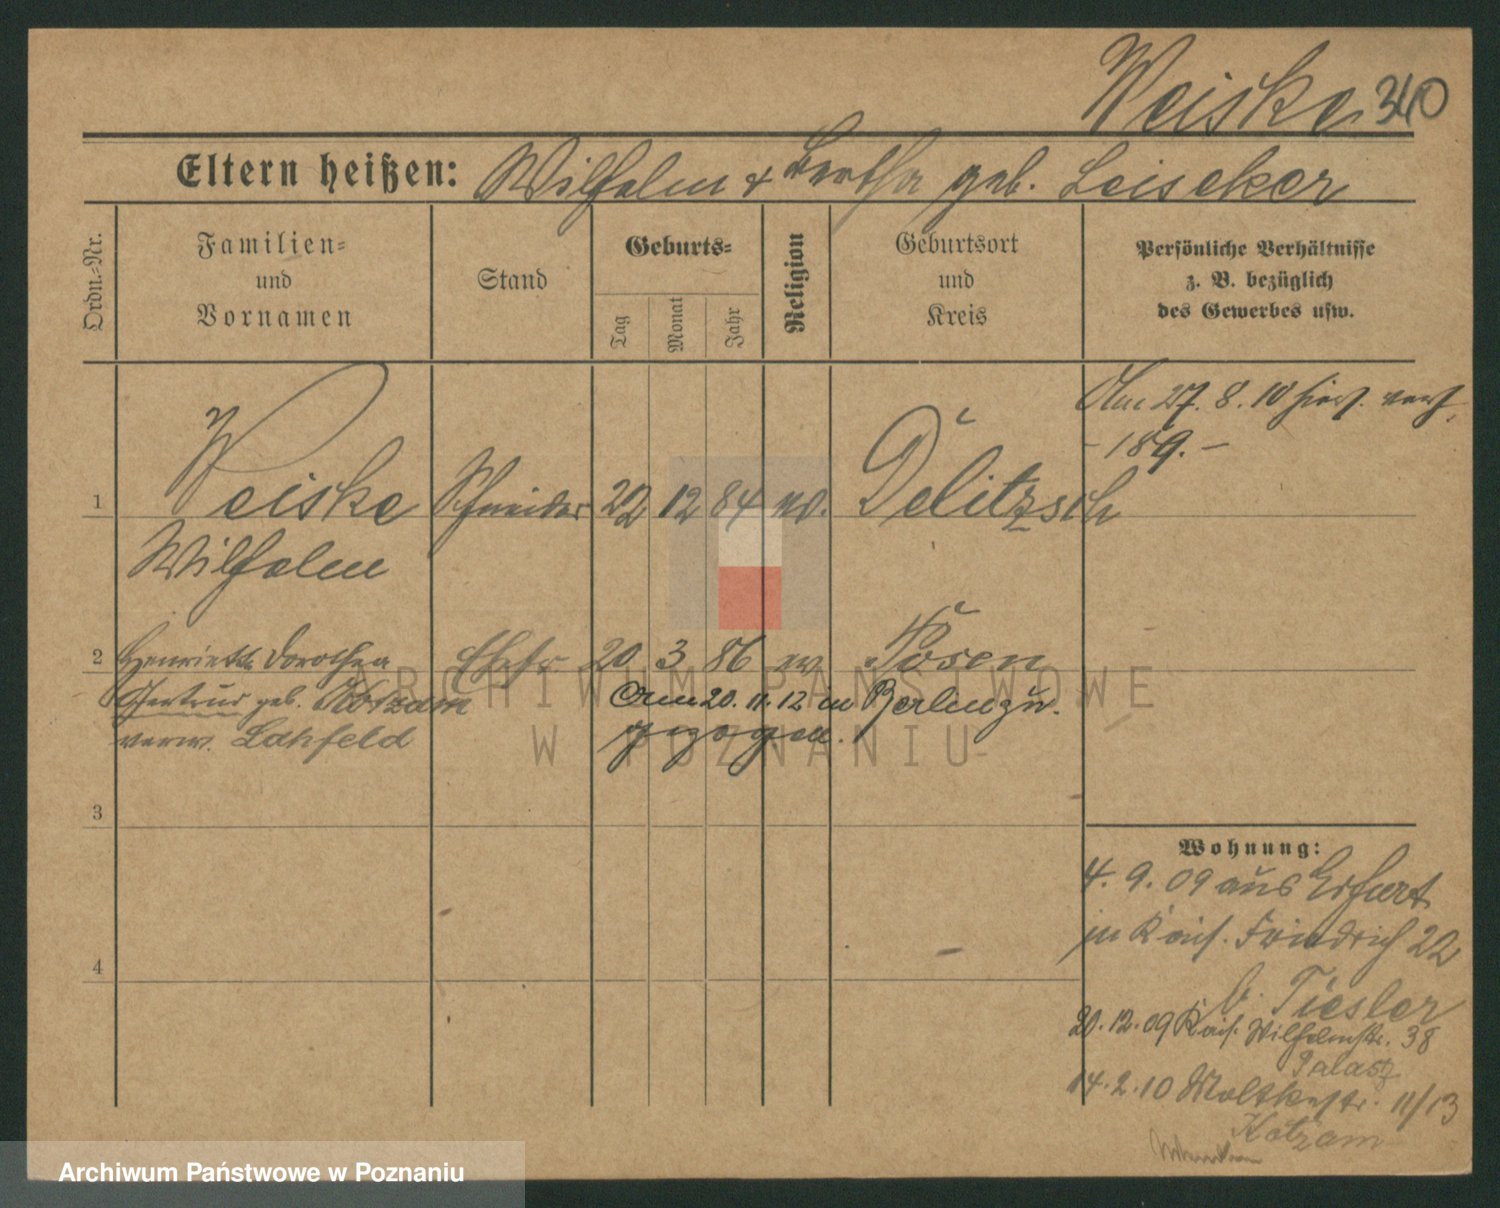 Weiske 340
Eltern heißen: Wilhelm & Bertha geb. Leiseker
Ordn.=Nr.
Familien=
und
Vornamen
Stand
Geburts=
Tag
Monat
Jahr
Religion
Geburtsort
und
Kreis
Persönliche Verhältnisse
z. B. bezüglich
des Gewerbes usw.
Am 27. 8. 10 hier. verh.
- 189. -
1 Weiske Schneider 22 12 84 ev. Delitzsch
Wilhelm
2 Henriette Dorothea Ehefr 20 3 86 ev. Posen
Gertrud geb. Kotzam
verw. Lahfeld
Am 20. 11. 12 in Berlin zu.
gezogen.
3
4
Wohnung:
4. 9. 09 aus Erfurt
in Kais. Friedrich 22
b. Tiesler
20. 12. 09 Kais. Wilhelmstr. 38
Palasz
14. 2. 10 Moltkestr. 11/13
Kotzam
ARCHIWUM PAŃSTWOWE
W POZNANIU
Archiwum Państwowe w Poznaniu